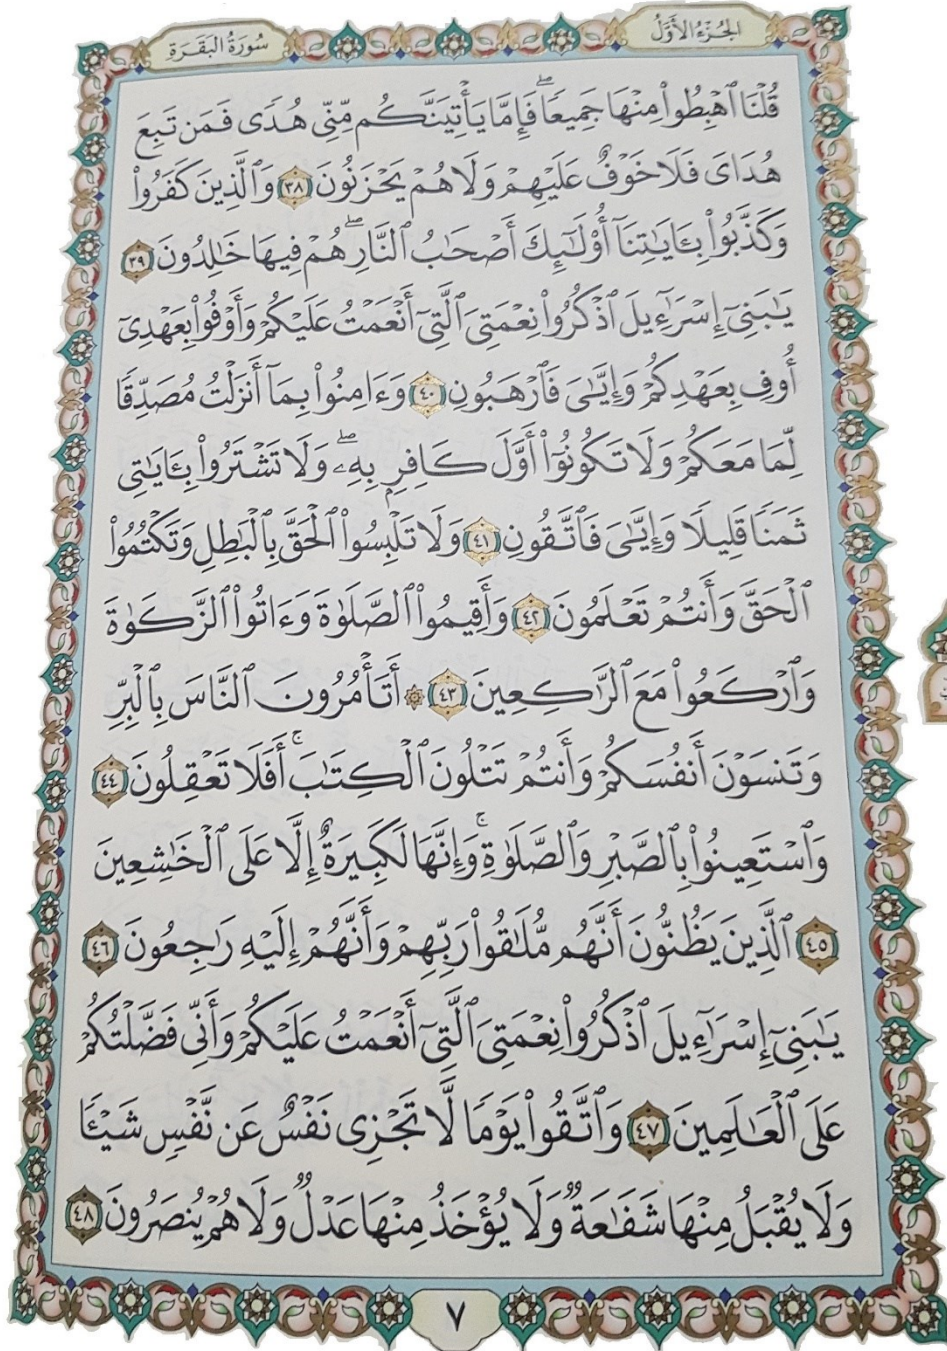 الجُزْءُ الأَوَّلُ
سُورَةُ البَقَرَةِ
قُلْنَا ٱهْبِطُوا۟ مِنْهَا جَمِيعًاۖ فَإِمَّا يَأْتِيَنَّكُم مِّنِّى هُدًى فَمَن تَبِعَ
هُدَاىَ فَلَا خَوْفٌ عَلَيْهِمْ وَلَا هُمْ يَحْزَنُونَ ٣٨ وَٱلَّذِينَ كَفَرُوا۟
وَكَذَّبُوا۟ بِـَٔايَٰتِنَآ أُو۟لَٰٓئِكَ أَصْحَٰبُ ٱلنَّارِۖ هُمْ فِيهَا خَٰلِدُونَ ٣٩
يَٰبَنِىٓ إِسْرَٰٓءِيلَ ٱذْكُرُوا۟ نِعْمَتِىَ ٱلَّتِىٓ أَنْعَمْتُ عَلَيْكُمْ وَأَوْفُوا۟ بِعَهْدِىٓ
أُوفِ بِعَهْدِكُمْ وَإِيَّٰىَ فَٱرْهَبُونِ ٤٠ وَءَامِنُوا۟ بِمَآ أَنزَلْتُ مُصَدِّقًا
لِّمَا مَعَكُمْ وَلَا تَكُونُوٓا۟ أَوَّلَ كَافِرٍۭ بِهِۦۖ وَلَا تَشْتَرُوا۟ بِـَٔايَٰتِى
ثَمَنًا قَلِيلًا وَإِيَّٰىَ فَٱتَّقُونِ ٤١ وَلَا تَلْبِسُوا۟ ٱلْحَقَّ بِٱلْبَٰطِلِ وَتَكْتُمُوا۟
ٱلْحَقَّ وَأَنتُمْ تَعْلَمُونَ ٤٢ وَأَقِيمُوا۟ ٱلصَّلَوٰةَ وَءَاتُوا۟ ٱلزَّكَوٰةَ
وَٱرْكَعُوا۟ مَعَ ٱلرَّٰكِعِينَ ٤٣ ۞ أَتَأْمُرُونَ ٱلنَّاسَ بِٱلْبِرِّ
وَتَنسَوْنَ أَنفُسَكُمْ وَأَنتُمْ تَتْلُونَ ٱلْكِتَٰبَۚ أَفَلَا تَعْقِلُونَ ٤٤
وَٱسْتَعِينُوا۟ بِٱلصَّبْرِ وَٱلصَّلَوٰةِۚ وَإِنَّهَا لَكَبِيرَةٌ إِلَّا عَلَى ٱلْخَٰشِعِينَ
٤٥ ٱلَّذِينَ يَظُنُّونَ أَنَّهُم مُّلَٰقُوا۟ رَبِّهِمْ وَأَنَّهُمْ إِلَيْهِ رَٰجِعُونَ ٤٦
يَٰبَنِىٓ إِسْرَٰٓءِيلَ ٱذْكُرُوا۟ نِعْمَتِىَ ٱلَّتِىٓ أَنْعَمْتُ عَلَيْكُمْ وَأَنِّى فَضَّلْتُكُمْ
عَلَى ٱلْعَٰلَمِينَ ٤٧ وَٱتَّقُوا۟ يَوْمًا لَّا تَجْزِى نَفْسٌ عَن نَّفْسٍ شَيْـًٔا
وَلَا يُقْبَلُ مِنْهَا شَفَٰعَةٌ وَلَا يُؤْخَذُ مِنْهَا عَدْلٌ وَلَا هُمْ يُنصَرُونَ ٤٨
٧